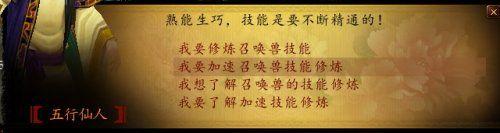 熟能生巧，技能是要不断精通的！
我要修炼召唤兽技能
我要加速召唤兽技能修炼
我想了解召唤兽的技能修炼
我要了解加速技能修炼
五行仙人